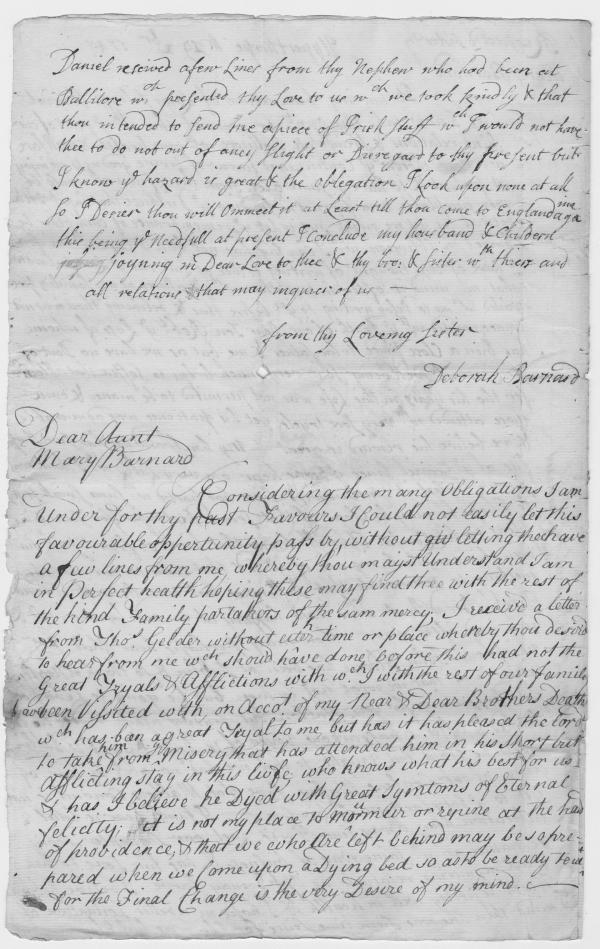 Daniel reseived a few Lines from thy Nephew who had been at
Ballitore wch presented thy Love to us wch we took kindly & that
thou intended to send me a piece of Irish Stuff wch I would not have
thee to do not out of aney slight or Disregard to thy present but
I know ye hazard is great & the obligation I Look upon none at all
so I Desier thou will Ommeet it at Least till thou come to England aga
this being ye Needfull at present I conclude my housband & Childern
joyning in Dear Love to thee & thy bror & Sister wth thiers and
all relations that may inquier of us —
from thy Loveing Sister
Deborah Barnard
Dear Aunt
Mary Barnard
Considering the many Obligations I am
Under for thy past Favours I Could not easily let this
favourable oppertunity pass by, without letting thee have
a few lines from me whereby thou mayst Understand I am
in Perfect health hopeing these may find thee with the rest of
the kind Family partakors of the sam mercy, I receive a letter
from Thos Gelder without either time or place whereby thou desird
to hear from me wch should have done before this had not the
Great Tryals & Afflictions with wch I with the rest of our family
been Vissited with, on Accot of my Near & Dear Brothers Death
wch has been a great Tryal to me, but has it has pleased the Lord
to take him from ye Misery that has attended him in his Short but
Afflicting stay in this life, who knows what his best for us
& has I believe he Dyed with Great Symtoms of Eternal
felicity; it is not my place to murmur or repine at the hand
of providence, & that we who are left behind may be so pre-
pared when we Come upon a Dying bed so as to be ready
for the Final Change is the very Desire of my mind.